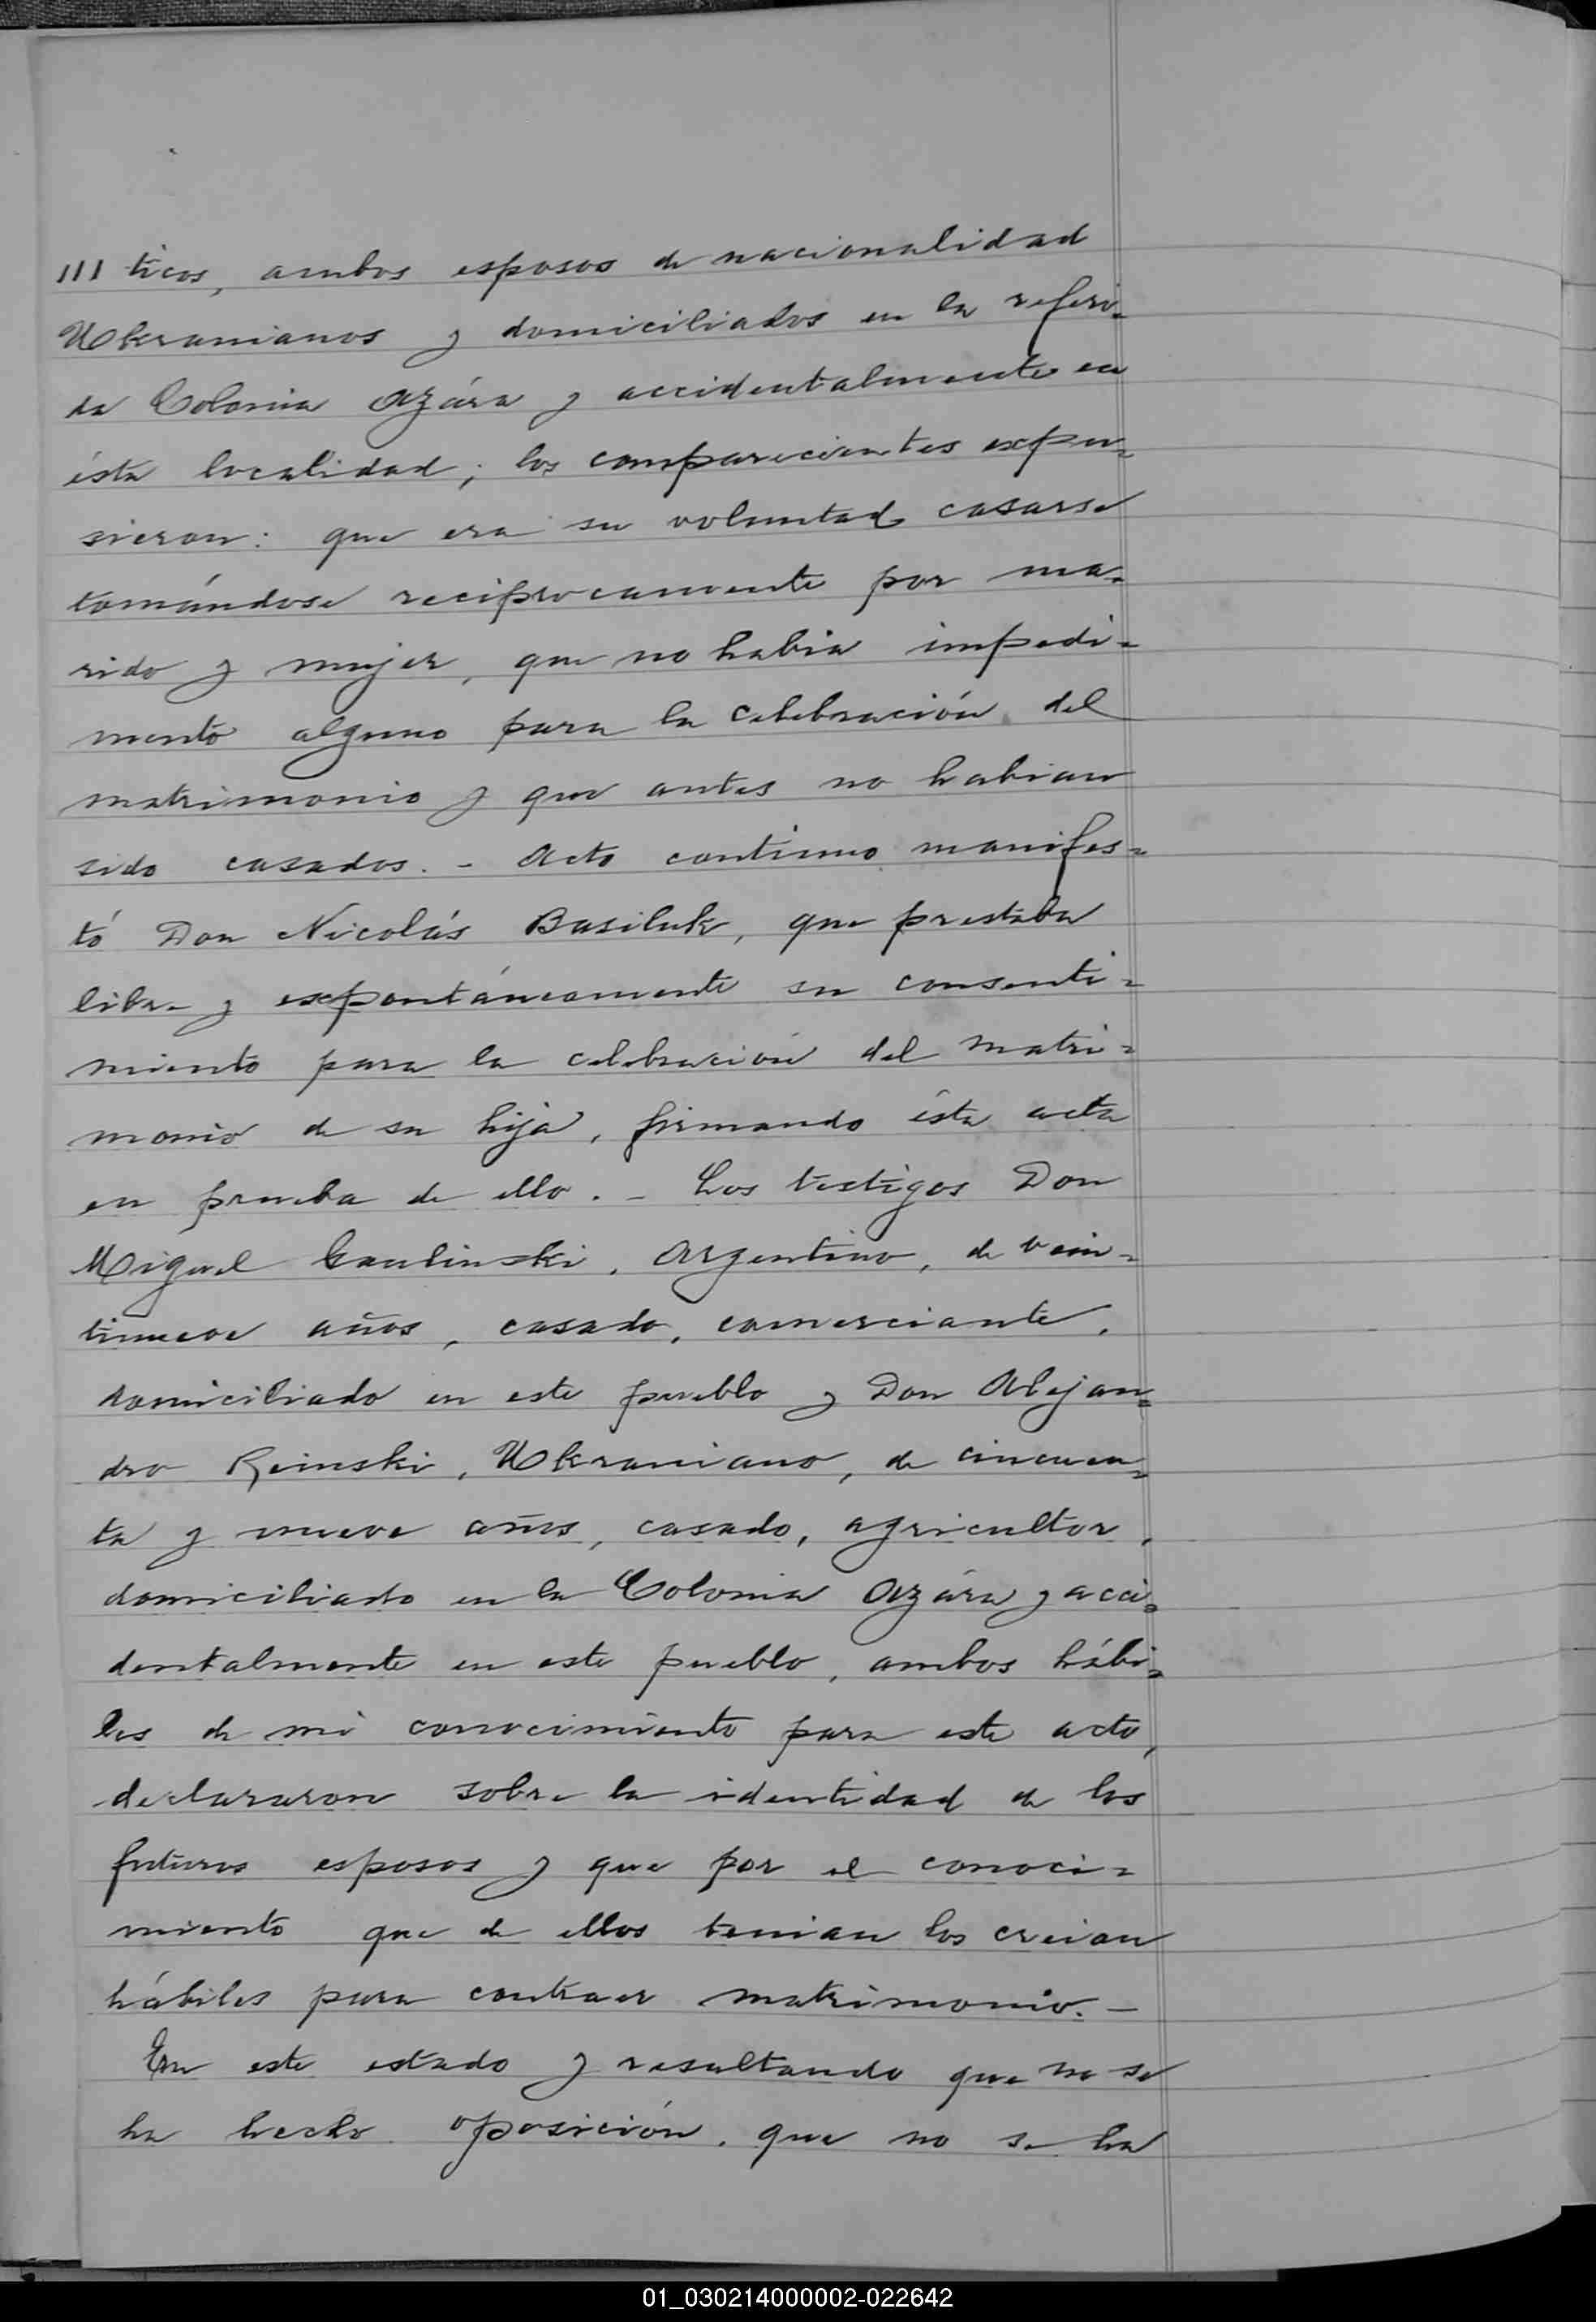 /// ticos, ambos esposos de nacionalidad
Ukranianos y domiciliados en la referi-
da Colonia Azára y accidentalmente en
ésta localidad; los comparecientes expu-
sieron: que era su voluntad casarse
tomándose reciprocamente por ma-
rido y mujer, que no habia impedi-
mento alguno para la celebración del
matrimonio y que antes no habian
sido casados. - Acto continuo manifes-
tó Don Nicolás Basiluk, que prestaba
libre y expontáneamente su consenti-
miento para la celebración del matri-
monio de su hija, firmando ésta acta
en prueba de ello. - Los testigos Don
Miguel Gaulinski, Argentino, de vein-
tinueve años, casado, comerciante,
domiciliado en este pueblo y Don Alejan-
dro Reinski, Ukraniano, de cincuen-
ta y nueve años, casado, agricultor,
domiciliado en la Colonia Azára y acci-
dentalmente en este pueblo, ambos hábi-
les de mi conocimiento para este acto,
declararon sobre la identidad de los
futuros esposos y que por el conoci-
miento que de ellos tenian los creian
hábiles para contraer matrimonio. -
En este estado y resultando que no se
ha hecho oposición, que no se ha
01_030214000002-022642